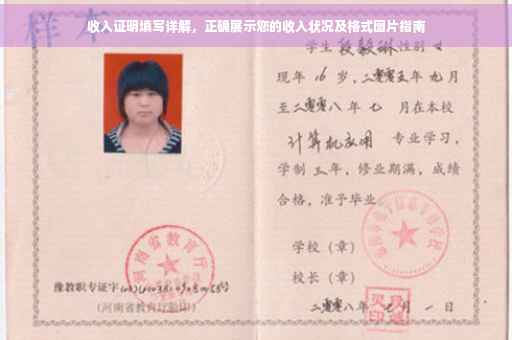 收入证明填写详解，正确展示您的收入状况及格式图片指南
样本
学生段毅琳性别女
现年16岁，二零零五年九月
至二零零八年七月在本校
计算机应用 专业学习，
学制三年，修业期满，成绩
合格，准予毕业
学校（章）
校长（章）
二零零八年 月一日
河南省教育厅
豫教职专证字
（河南省教育厅验印）